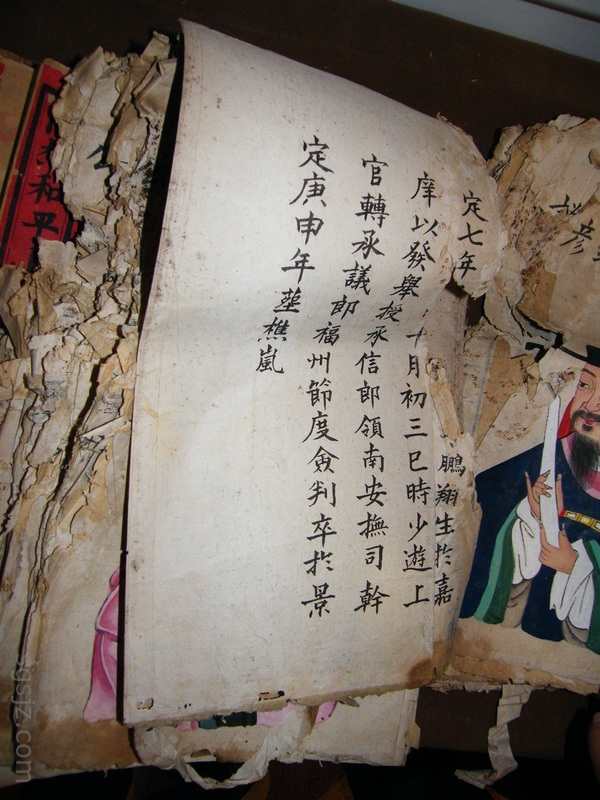 彥
鵬翔生於嘉
定七年十月初三巳時少遊上
庠以發舉授承信郎領南安撫司幹
官轉承議郎福州節度僉判卒於景
定庚申年葬樵嵐
和平